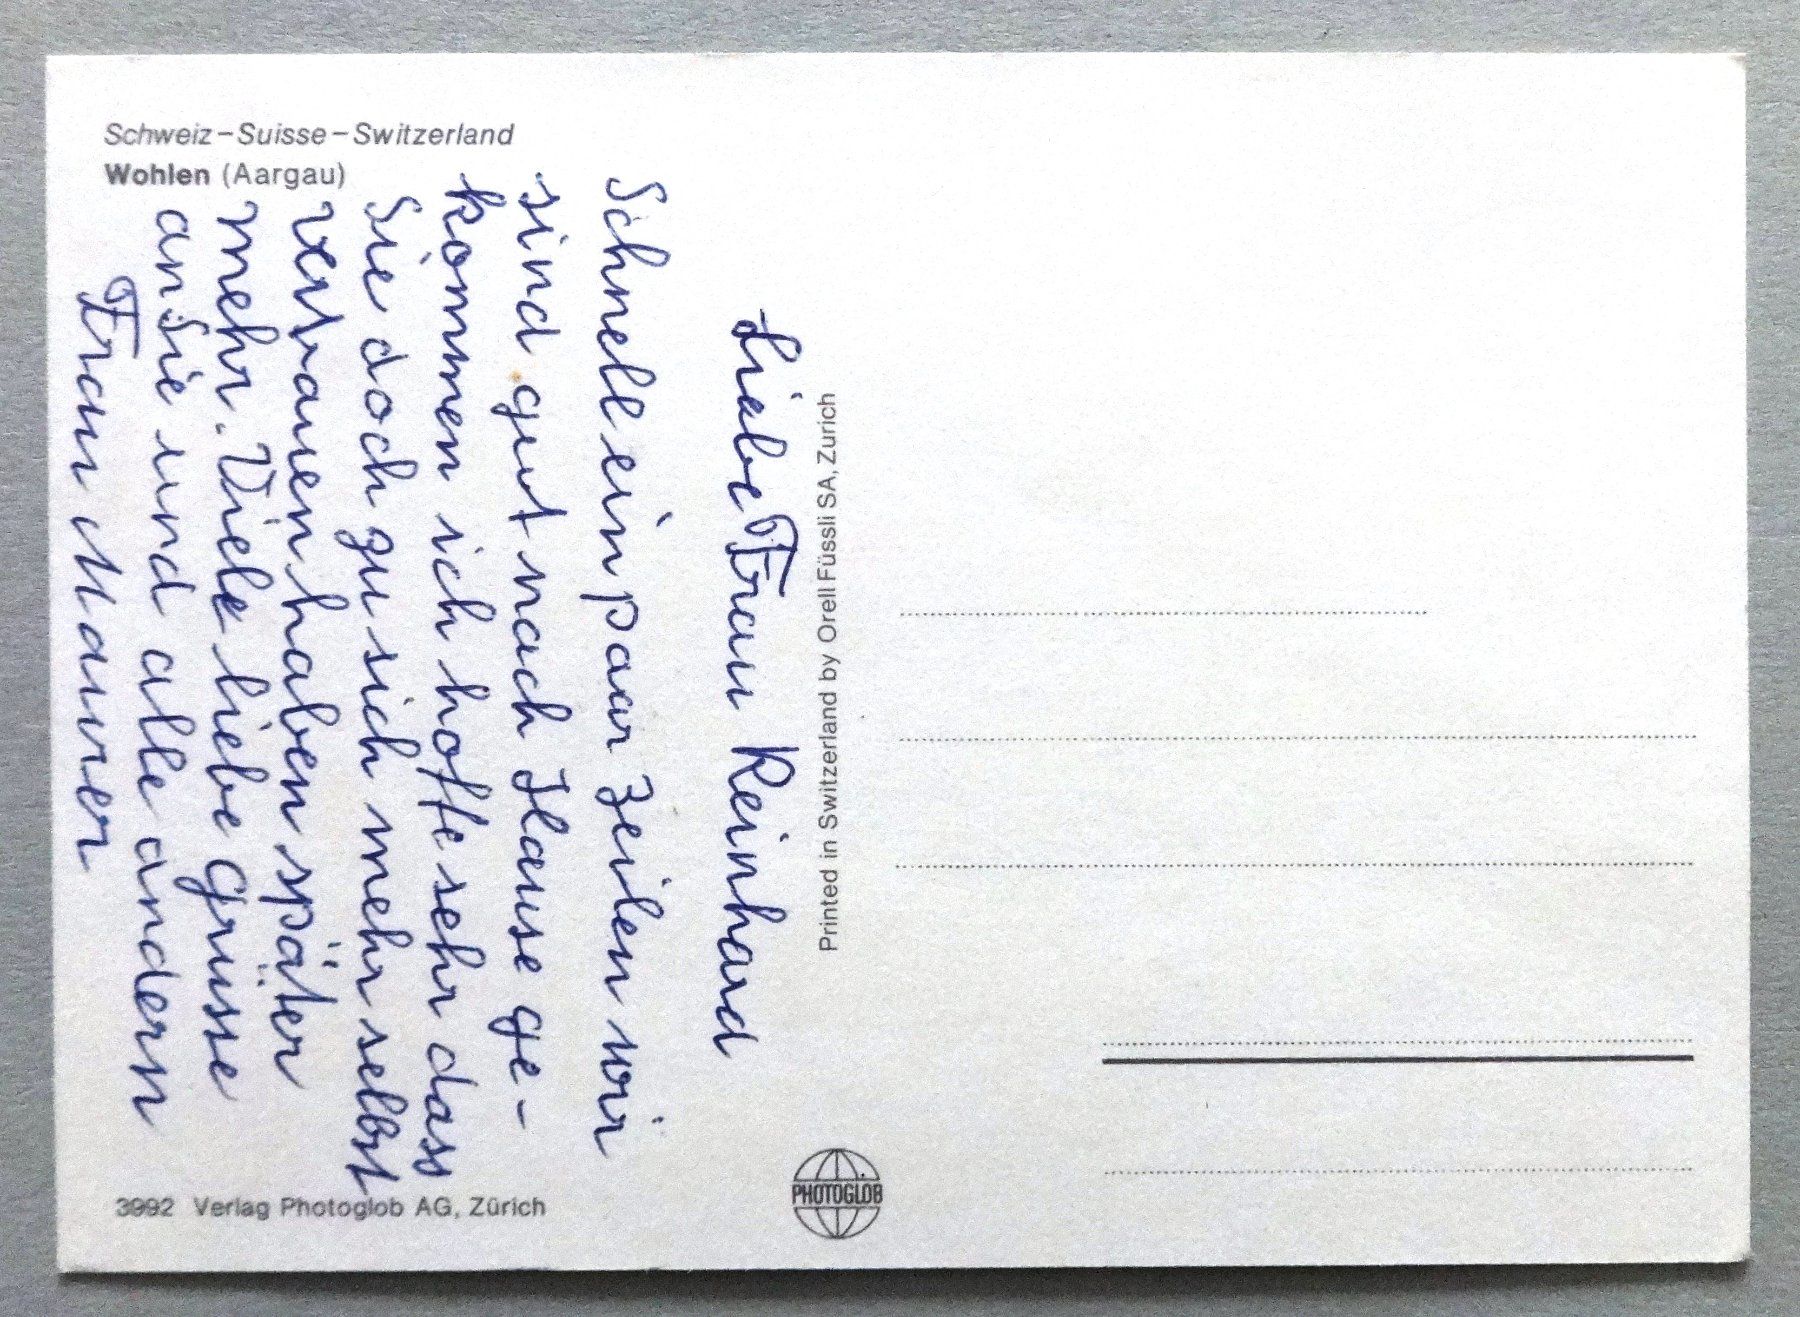 Schweiz – Suisse – Switzerland
Wohlen (Aargau)
Liebe Frau Reinhard
Schnell ein paar Zeilen wir
sind gut nach Hause ge-
kommen ich hoffe sehr dass
Sie doch zu sich mehr selbst
vertrauen haben später
mehr. Viele liebe grüsse
an Sie und alle andern
Frau Maurer
Printed in Switzerland by Orell Füssli SA, Zurich
PHOTOGLOB
3992 Verlag Photoglob AG, Zürich